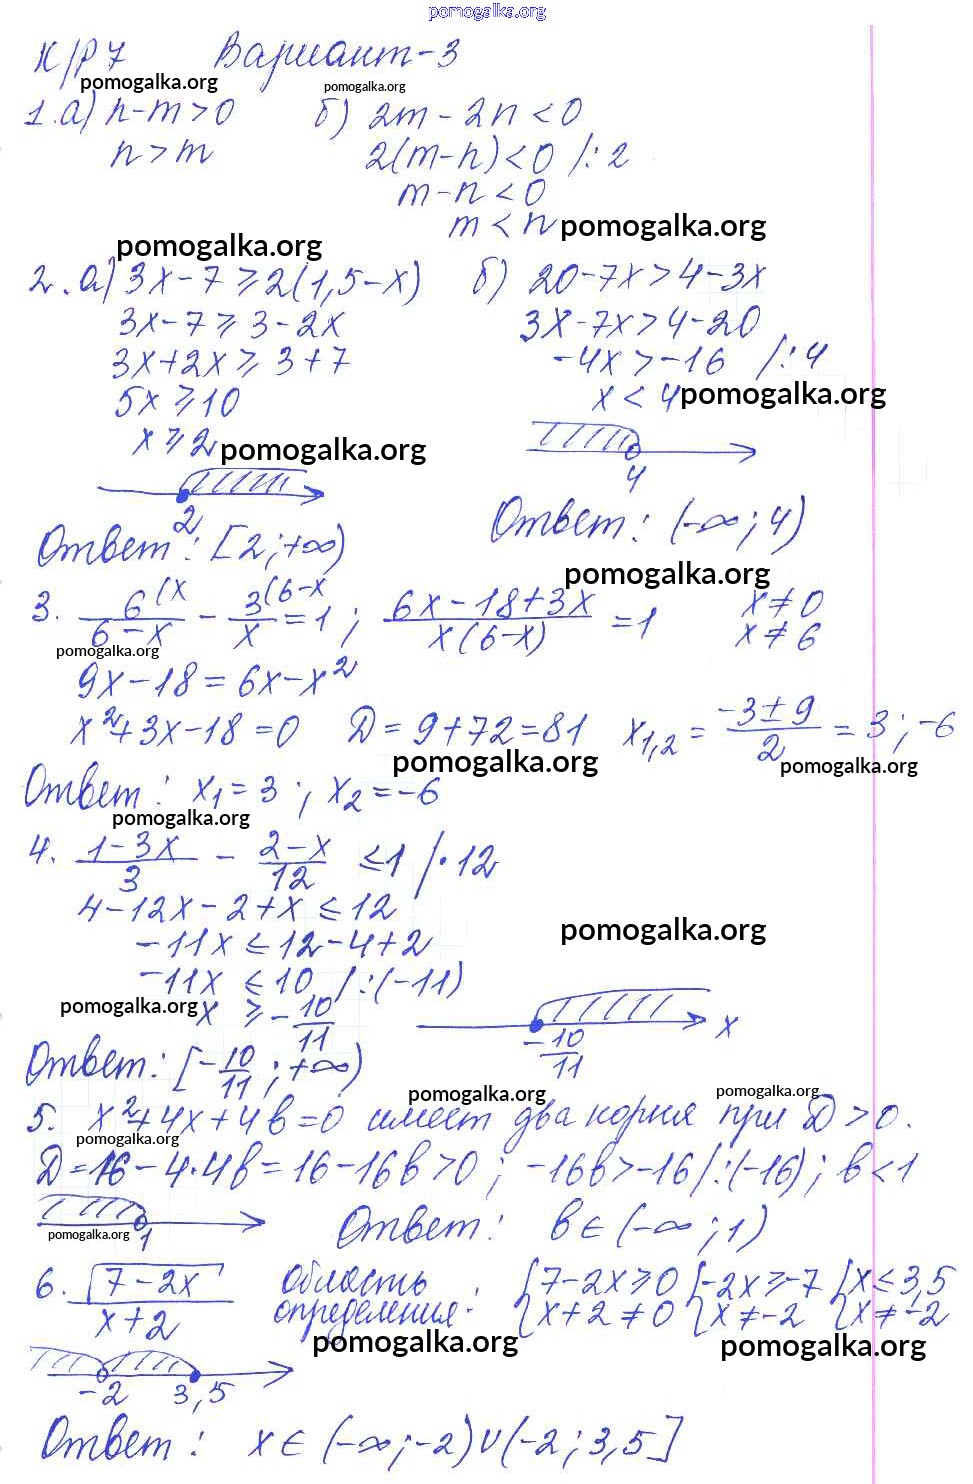 pomogalka.org
К/Р 7 Вариант-3
pomogalka.org pomogalka.org
1. а) n-m>0 б) 2m-2n<0
n>m 2(m-n)<0 /:2
m-n<0
m<n pomogalka.org
pomogalka.org
2. а) 3x-7⩾2(1,5-x) б) 20-7x>4-3x
3x-7⩾3-2x 3x-7x>4-20
3x+2x⩾3+7 -4x>-16 /:4
5x⩾10 x<4 pomogalka.org
x⩾2 pomogalka.org
2 4
Ответ: [2;+∞) Ответ: (-∞;4)
pomogalka.org
3. 6(x/(6-x) - 3(6-x/x = 1; (6x-18+3x)/(x(6-x)) = 1 x≠0
x≠6
pomogalka.org
9x-18=6x-x²
x²+3x-18=0 D=9+72=81 x₁,₂ = (-3±9)/2 = 3; -6
pomogalka.org pomogalka.org
Ответ: x₁=3; x₂=-6
pomogalka.org
4. (1-3x)/3 - (2-x)/12 ⩽1 /·12
4-12x-2+x⩽12
pomogalka.org
-11x⩽12-4+2
-11x⩽10 /:(-11)
pomogalka.org x⩾-10/11 -10/11 x
Ответ: [-10/11;+∞)
pomogalka.org pomogalka.org
5. x²+4x+4b=0 имеет два корня при D>0.
pomogalka.org
D=16-4·4b=16-16b>0; -16b>-16 /:(-16); b<1
pomogalka.org 1 Ответ: b∈(-∞;1)
6. √(7-2x)/(x+2) область определения: {7-2x⩾0 {-2x⩾-7 {x⩽3,5
{x+2≠0 {x≠-2 {x≠-2
pomogalka.org pomogalka.org
-2 3,5
Ответ: x∈(-∞;-2)∪(-2;3,5]